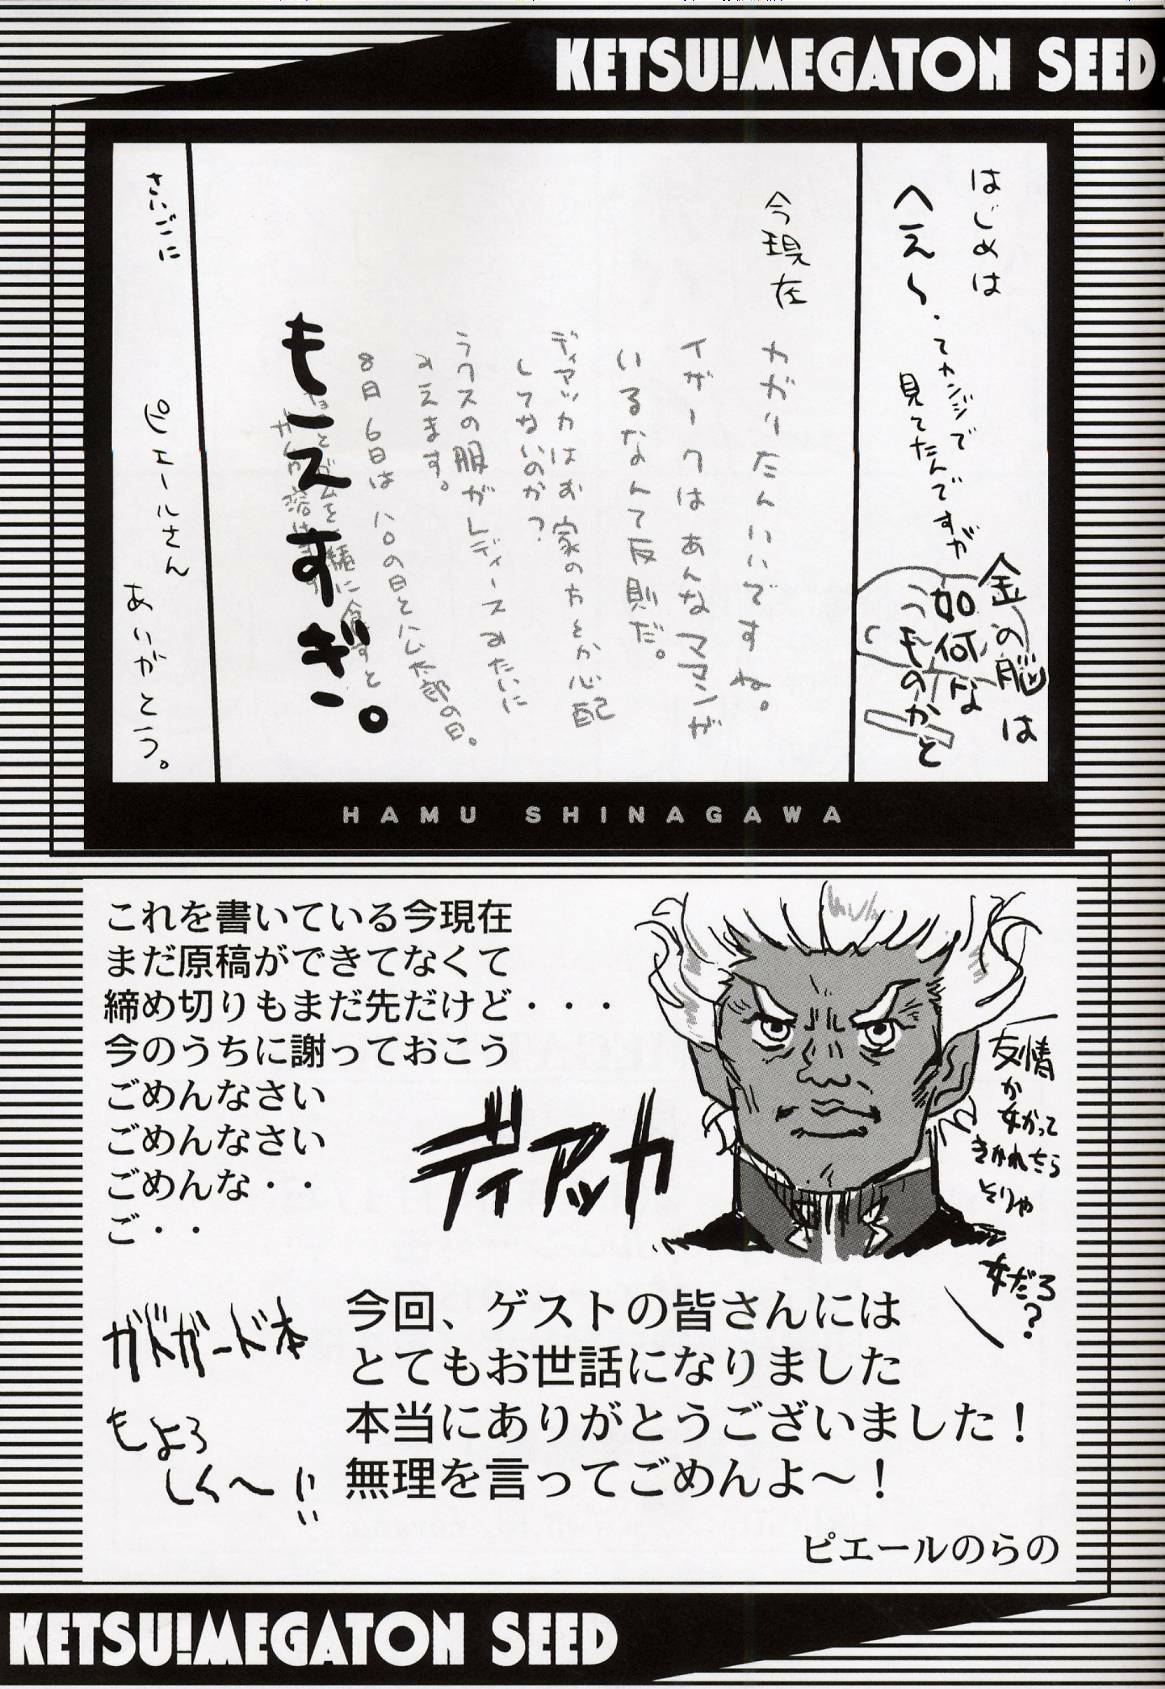 KETSU!MEGATON SEED
はじめは
へえ〜・てカンジで
見てたんですが
金の脳は
如何な
ものかと
今現在
カガリたんいいですね。
イザークはあんなママンが
いるなんて反則だ。
ディアッカはお家の方とか心配
してないのか?
ラクスの服がレディースみたいに
みえます。
8月6日はハムの日とハム太郎の日。
もーえすぎー。
さいごに
ピエールさん
ありがとう。
HAMU SHINAGAWA
これを書いている今現在
まだ原稿ができてなくて
締め切りもまだ先だけど・・・
今のうちに謝っておこう
ごめんなさい
ごめんなさい
ごめんな・・
ご・・
ディアッカ
友情
か
女かって
きかれたら
そりゃ
女だろ
?
ガドガード本
もよろ
しく〜!!
今回、ゲストの皆さんには
とてもお世話になりました
本当にありがとうございました!
無理を言ってごめんよ〜!
ピエールのらの
KETSU!MEGATON SEED